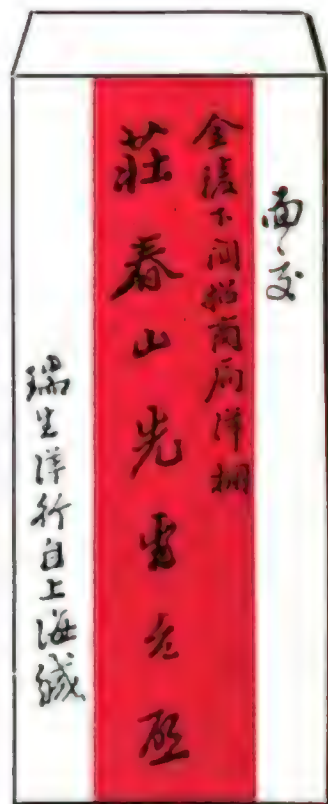 面交
金陵下關招商局洋棚
莊春山先電立啟
瑞生洋行自上海緘